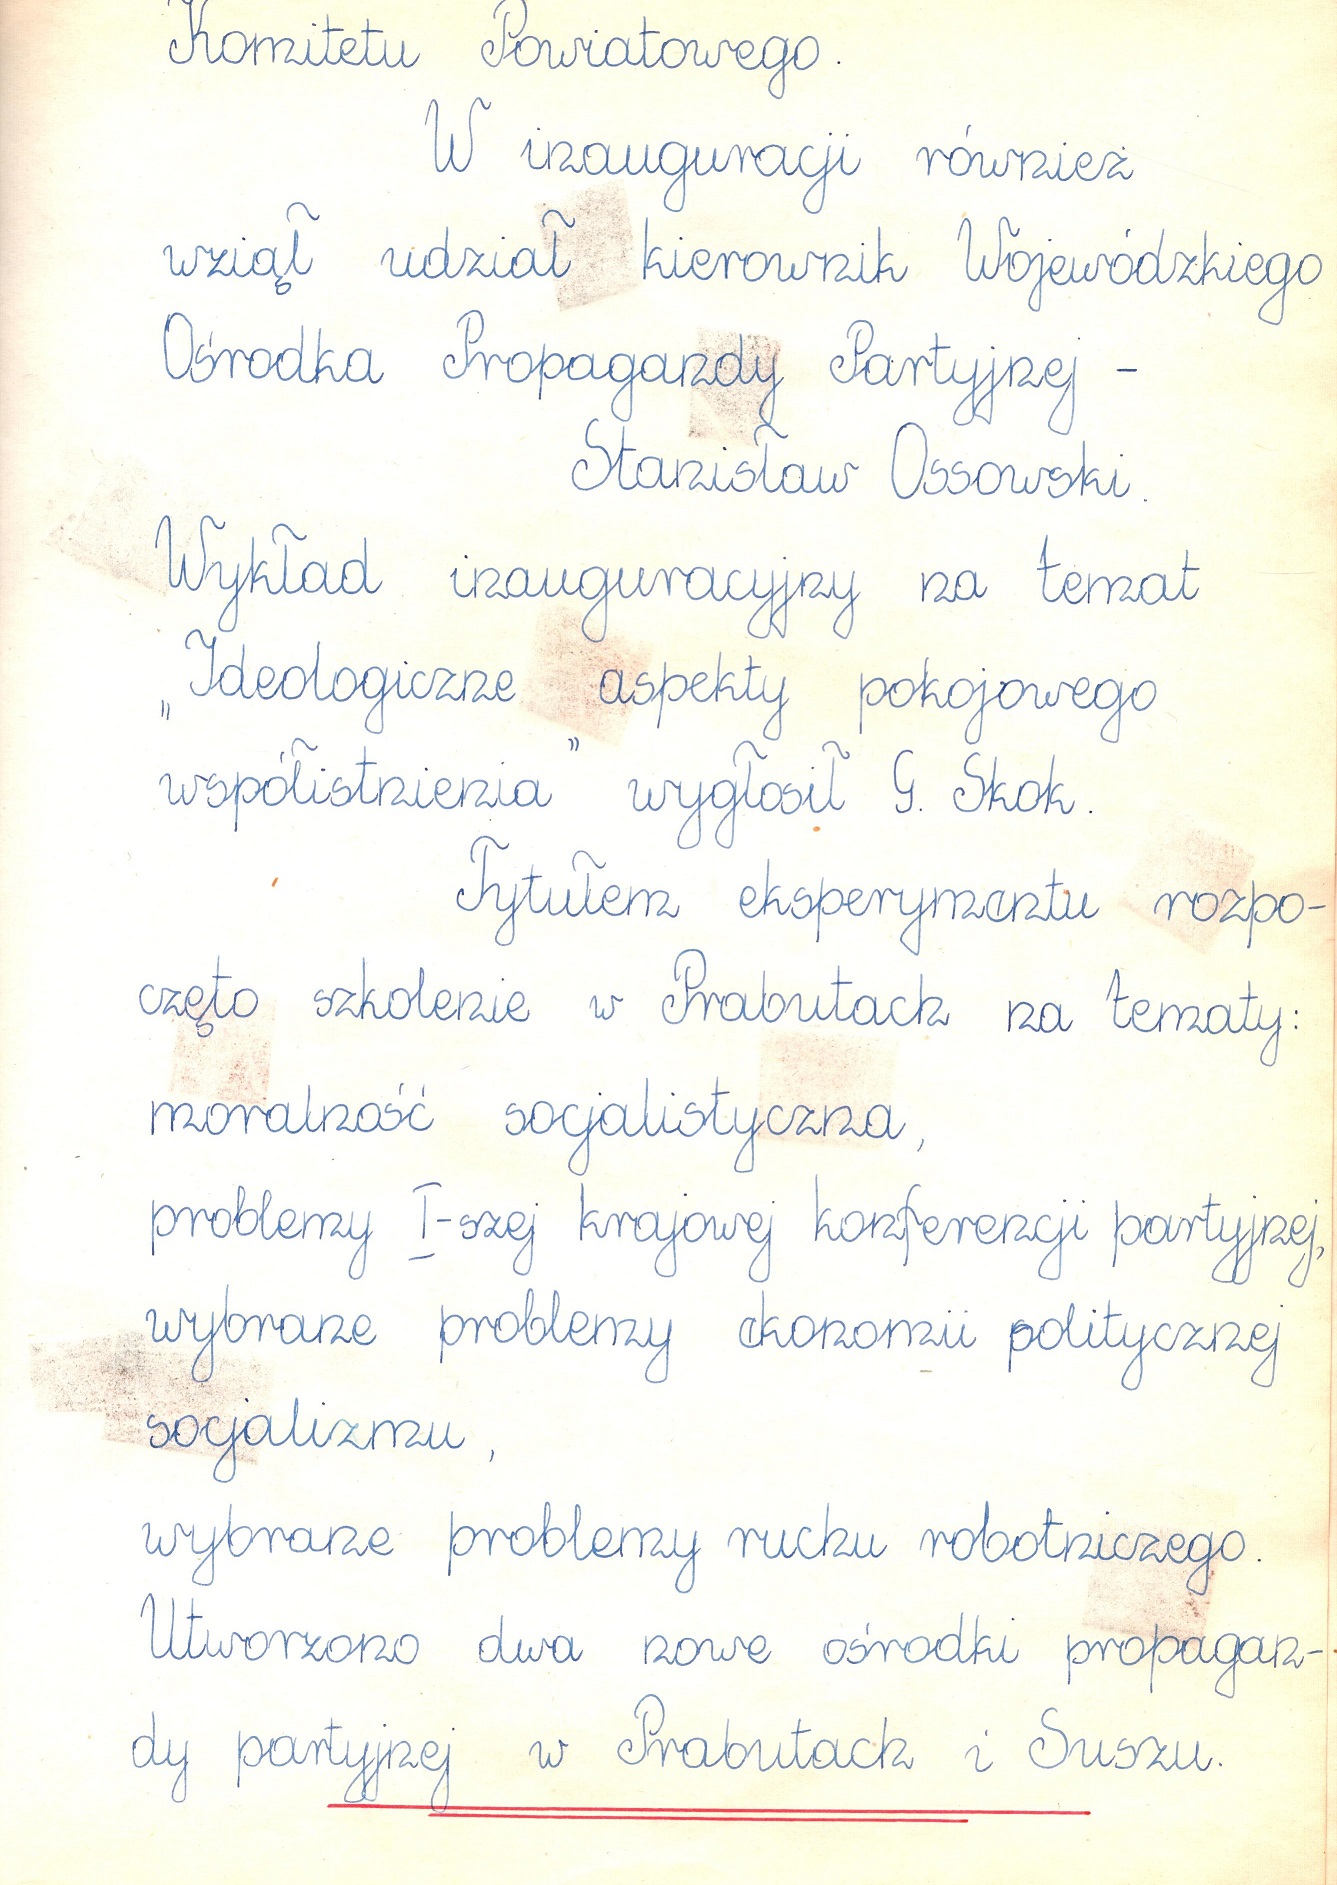 Komitetu Powiatowego.
W inauguracji również
wziął udział kierownik Wojewódzkiego
Ośrodka Propagandy Partyjnej -
Stanisław Ossowski.
Wykład inauguracyjny na temat
„Ideologiczne aspekty pokojowego
współistnienia" wygłosił G. Skok.
Tytułem eksperymentu rozpo-
częto szkolenie w Prabutach na tematy:
moralność socjalistyczna,
problemy I-szej krajowej konferencji partyjnej,
wybrane problemy ekonomii politycznej
socjalizmu,
wybrane problemy ruchu robotniczego.
Utworzono dwa nowe ośrodki propagan-
dy partyjnej w Prabutach i Suszu.